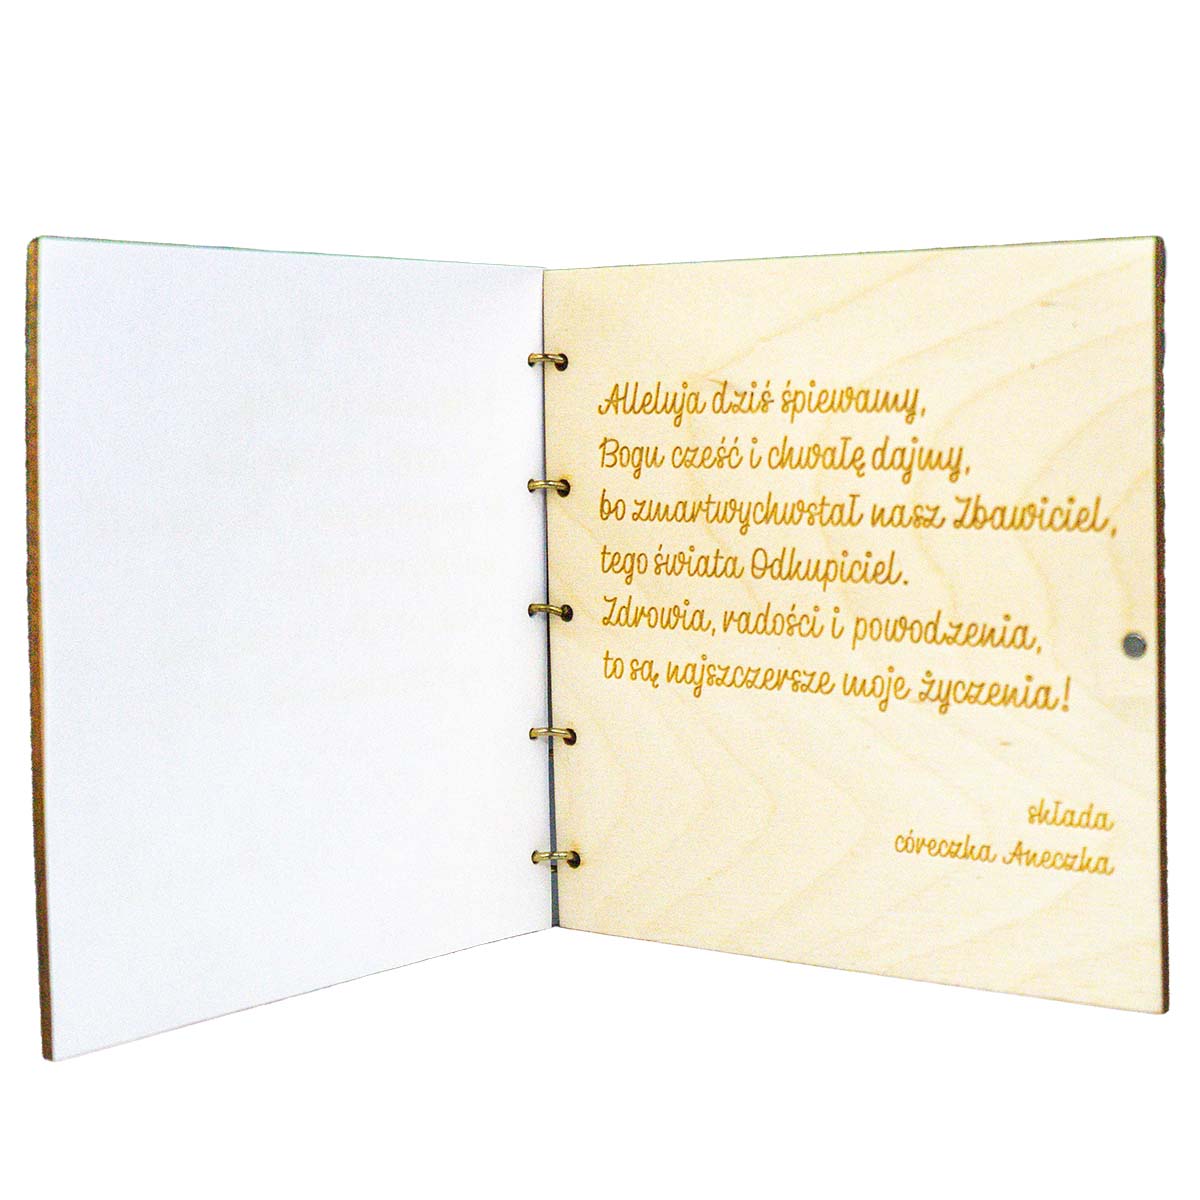 Alleluja dziś śpiewamy,
Bogu cześć i chwałę dajmy,
bo zmartwychwstał nasz Zbawiciel,
tego świata Odkupiciel.
Zdrowia, radości i powodzenia,
to są najszczersze moje życzenia!
składa
córeczka Aneczka